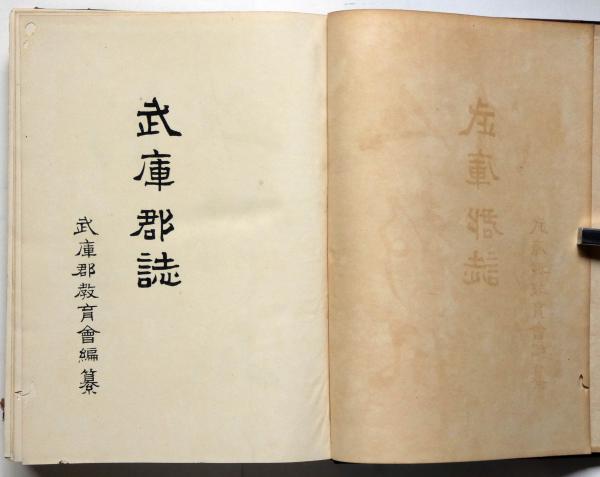 武庫郡誌
武庫郡教育會編纂